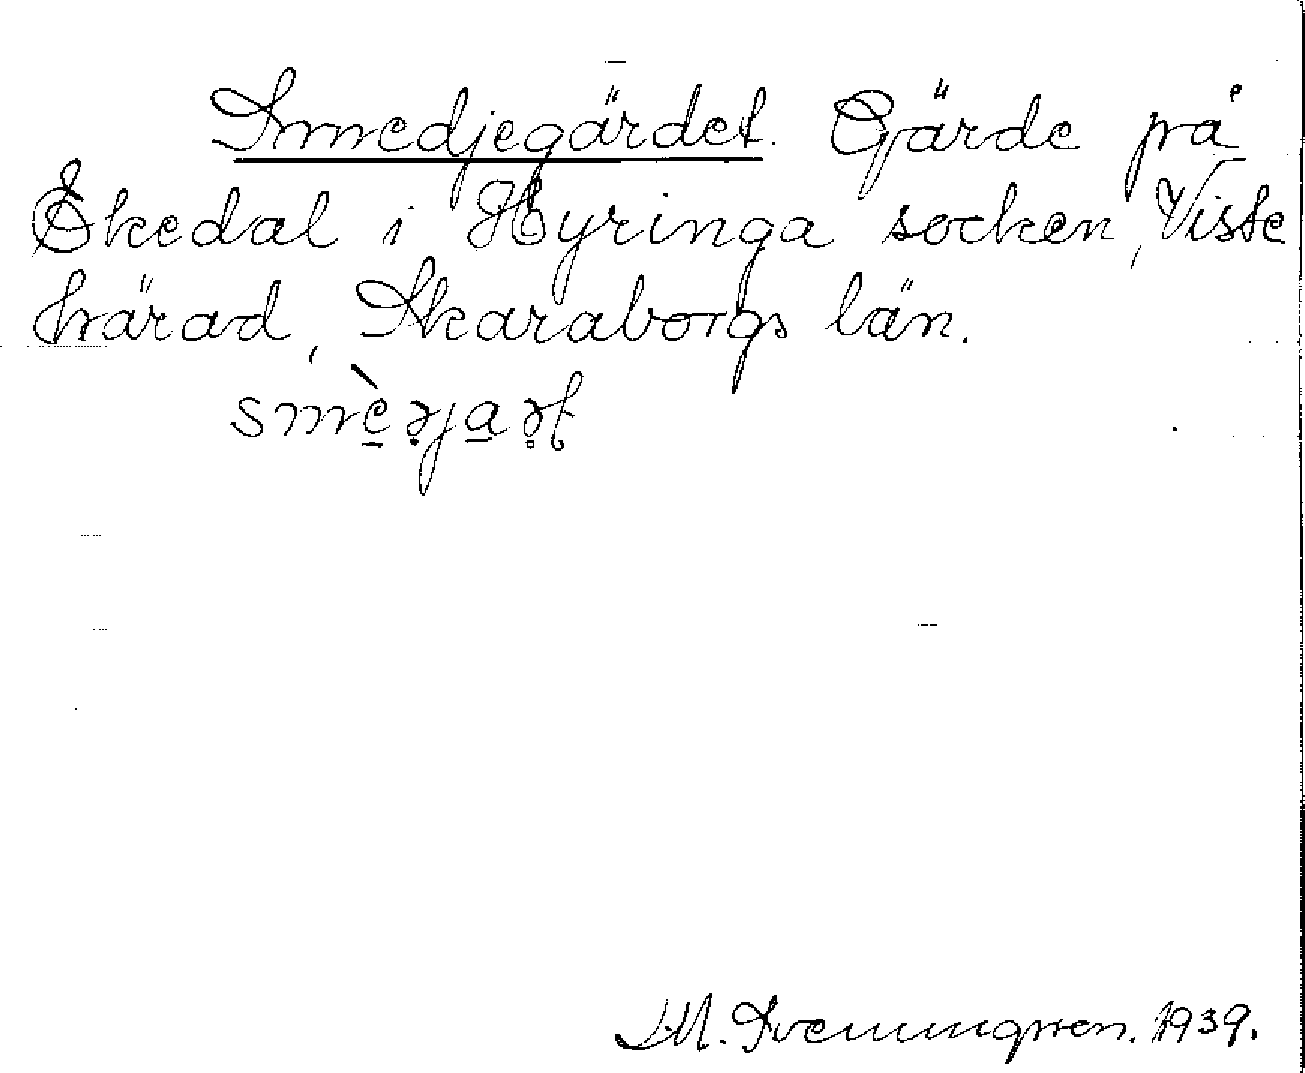 Smedjegärdet. Gärde på
Ekedal i Hyringa socken, Viste
härad, Skaraborgs län.
M. Svenungsson. 1939.